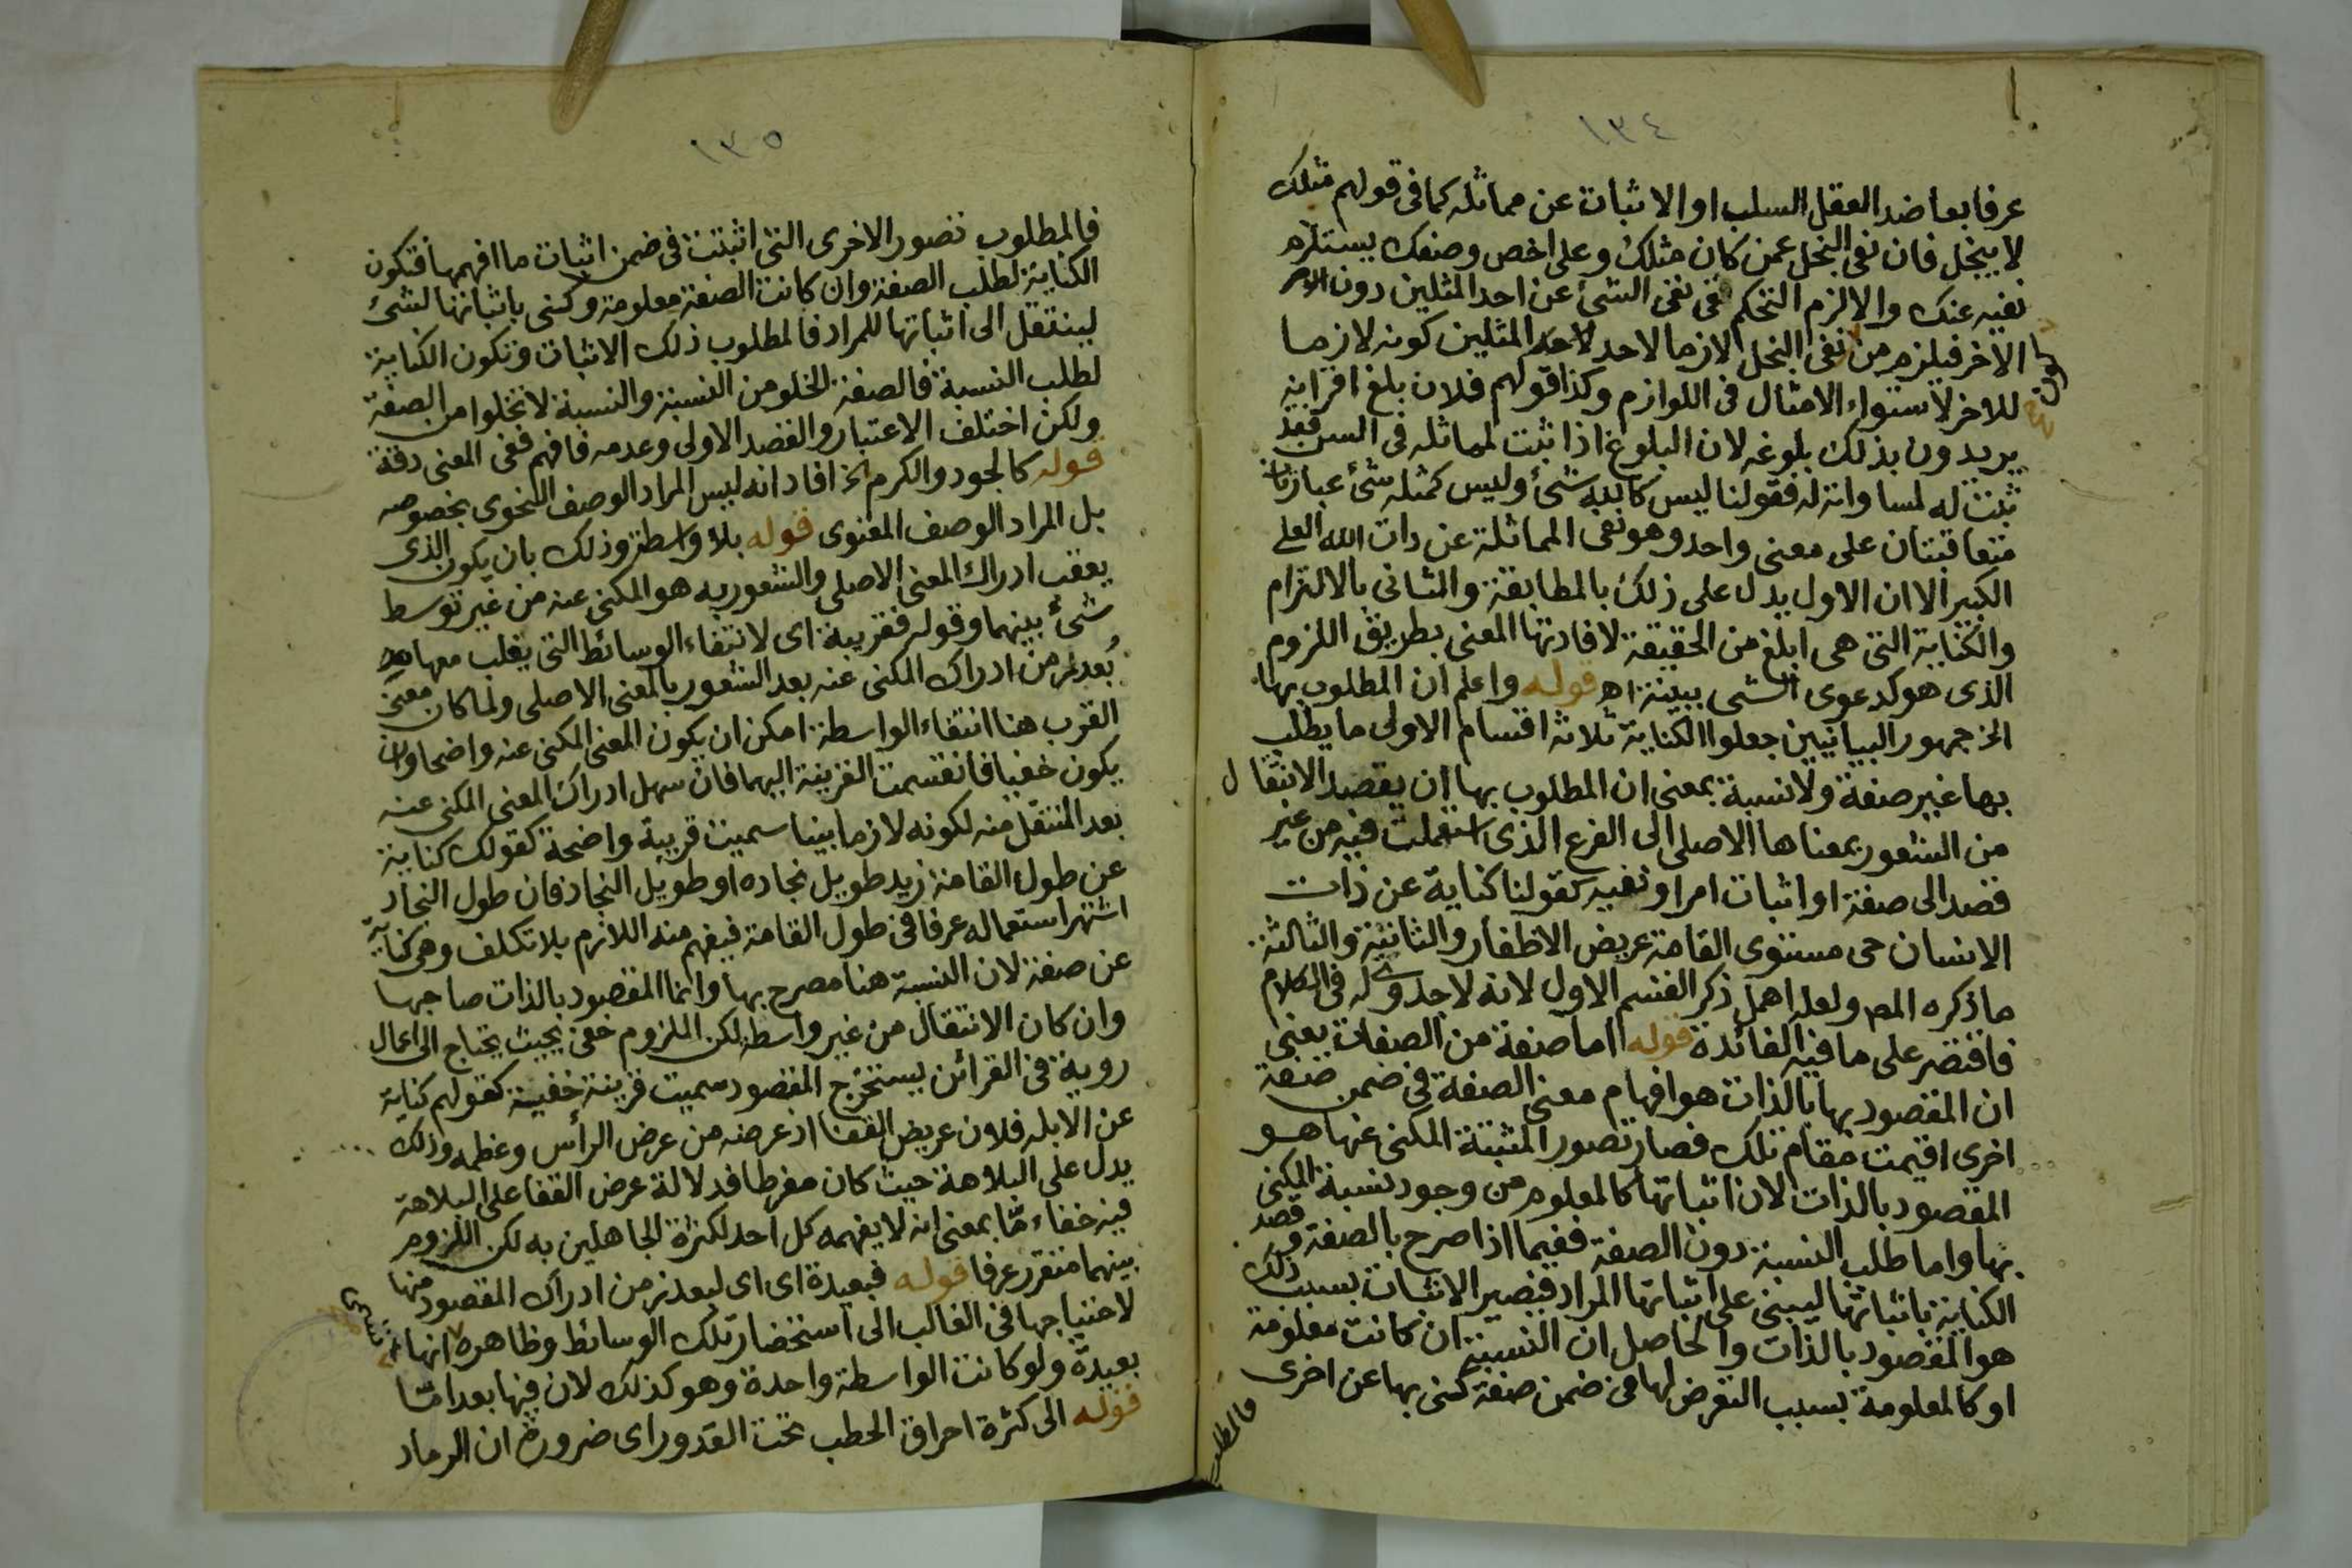 ١٣٤
عرفا بعاضد العقل السلب او الاثبات عن مماثله كما فى قولهم مثلك
لا يبخل فان نفى البخل عمن كان مثلك وعلى اخص وصفك يستلزم
نفيه عنك والا لزم التحكم فى نفى الشئ عن احد المثلين دون
الاخر فيلزم من نفى البخل لازما لاحد المثلين كونه لازما
للاخر لاستواء الامثال فى اللوازم وكذا قولهم فلان بلغ اقرانه
يريدون بذلك بلوغه لان البلوغ اذا ثبت لمماثله فى السن فقد
ثبت له لمساواته له فقولنا ليس كالله شئ وليس كمثله شئ عبارتان
متعاقبتان على معنى واحد وهو نفى المماثلة عن ذات الله العلى
الكبير الا ان الاول يدل على ذلك بالمطابقة والثانى بالالتزام
والكناية التى هى ابلغ من الحقيقة لافادتها المعنى بطريق اللزوم
الذى هو كدعوى الشى ببينة اه قوله واعلم ان المطلوب بها
الخ جمهور البيانيين جعلوا الكناية ثلاثة اقسام الاولى ما يطلب
بها غير صفة ولا نسبة بمعنى ان المطلوب بها ان يقصد الانتقال
من الشعور بمعناها الاصلى الى الفرع الذى استعملت فيه من غير
قصد الى صفة او اثبات امر او نفيه كقولنا كناية عن ذات
الانسان حى مستوى القامة عريض الاظفار والثانية والثالثة
ما ذكره المص ولعله اهمل ذكر القسم الاول لانه لا جدوى له فى الكلام
فاقتصر على ما فيه الفائدة قوله اما صفة من الصفات يعنى
ان المقصود بها بالذات هو افهام معنى الصفة فى ضمن صفة
اخرى اقيمت مقام تلك فصار تصور المثبتة المكنى عنها هو
المقصود بالذات لان اثباتها كالمعلوم من وجود نسبة المكنى
بها واما طلب النسبة دون الصفة ففيما اذا صرح بالصفة وقصد
الكناية باثباتها ليبنى على اثباتها المراد فيصير الاثبات بسبب ذلك
هو المقصود بالذات والحاصل ان النسبة ان كانت معلومة
او كالمعلومة بسبب التعرض لها فى ضمن صفة كنى بها عن اخرى
فالمطلوب
١٣٥
فالمطلوب تصور الاخرى التى اثبتت فى ضمن اثبات ما افهمها فتكون
الكناية لطلب الصفة وان كانت الصفة معلومة وكنى باثباتها لشئ
لينتقل الى اثباتها للمراد فالمطلوب ذلك الاثبات وتكون الكناية
لطلب النسبة فالصفة لا تخلو من النسبة والنسبة لا تخلوا من الصفة
ولكن اختلف الاعتبار والقصد الاولى وعدمه فافهم ففى المعنى دقة
قوله كالجود والكرم الخ افاد انه ليس المراد الوصف النحوى بخصوصه
بل المراد الوصف المعنوى قوله بلا واسطة وذلك بان يكون الذى
يعقب ادراك المعنى الاصلى والشعور به هو المكنى عنه من غير توسط
شئ بينهما وقوله فقريبة اى لانتفاء الوسائط التى يغلب معها
بُعد زمن ادراك المكنى عنه بعد الشعور بالمعنى الاصلى ولما كان معنى
القرب هنا انتفاء الواسطة امكن ان يكون المعنى المكنى عنه واضحا وان
يكون خفيا فانقسمت القرينة اليهما فان سهل ادراك المعنى المكنى عنه
بعد المنتقل منه لكونه لازما بينا سميت قريبة واضحة كقولك كناية
عن طول القامة زيد طويل نجاده او طويل النجاد فان طول النجاد
اشتهر استعماله عرفا فى طول القامة فيفهم منه اللازم بلا تكلف وهى كناية
عن صفة لان النسبة هنا مصرح بها وانما المقصود بالذات صاحبها
وان كان الانتقال من غير واسطة لكن الملزوم خفى بحيث يحتاج الى اعمال
روية فى القرائن يستخرج المقصود سميت قرينة خفية كقولهم كناية
عن الابله فلان عريض القفا اذ عرضه من عرض الرأس وعظمه وذلك
يدل على البلاهة حيث كان مفرطا فدلالة عرض القفا على البلاهة
فيه خفاء مّا بمعنى انه لا يفهمه كل احد لكثرة الجاهلين به لكن اللزوم
بينهما متقرر عرفا قوله فبعيدة اى اى لبعد زمن ادراك المقصود منها
لاحتياجها فى الغالب الى استحضار تلك الوسائط وظاهره انها تسمى
بعيدة ولو كانت الواسطة واحدة وهو كذلك لان فيها بعدا مّا
قوله الى كثرة احراق الحطب تحت القدور اى ضرورة ان الرماد